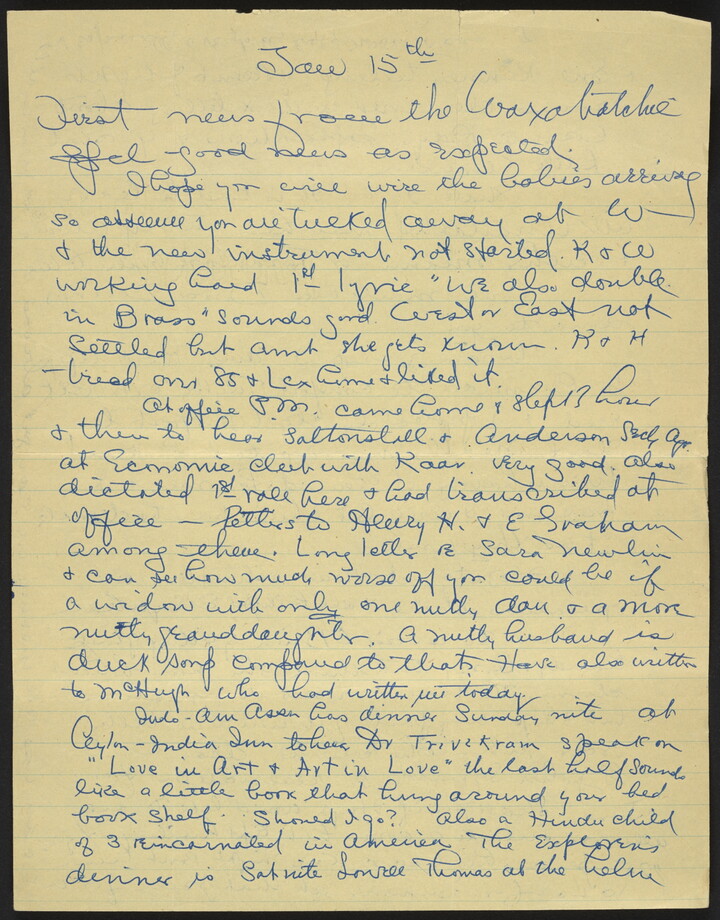 Jan 15th
First news from the Waxahatchie
good news as expected.
I hope you will wire the babies arriving
so assume you are tucked away at W—
& the new instrument not started. K & W
working hard 1st lyric "We also double
in Brass" sounds good. West or East not
settled but amt she gets known. K & H
tried our 88 & Lex home & liked it.
At office P.M. came home & slept 3 hour
& then to hear Saltonstall & Anderson Secty Agr.
at Economic club with Kaar. Very good. Also
dictated 1st role here & had transcribed at
office — letters to Henry H. & E Graham
among them. Long letter Sara Newlin
& can see how much worse off you could be if
a widow with only one nutty dau. & a more
nutty granddaughter. A nutty husband is
duck soup compared to that. Have also written
to McHugh who had written me today.
Indo-Am Assn has dinner Sunday nite at
Ceylon-India Inn to hear Dr Trivikram speak on
"Love in Art & Art in Love" the last half sounds
like a little book that hung around your bed
book shelf. Should I go? Also a Hindu child
of 3 reincarnated in America. The Explorers
dinner is Sat nite Lowell Thomas at the helm